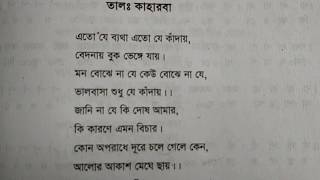 তালঃ কাহারবা
এতো যে ব্যথা এতো যে কাঁদায়,
বেদনায় বুক ভেঙ্গে যায়।
মন বোঝে না যে কেউ বোঝে না যে,
ভালবাসা শুধু যে কাঁদায়।।
জানি না যে কি দোষ আমার,
কি কারণে এমন বিচার।
কোন অপরাধে দূরে চলে গেলে কেন,
আলোর আকাশ মেঘে ছায়।।